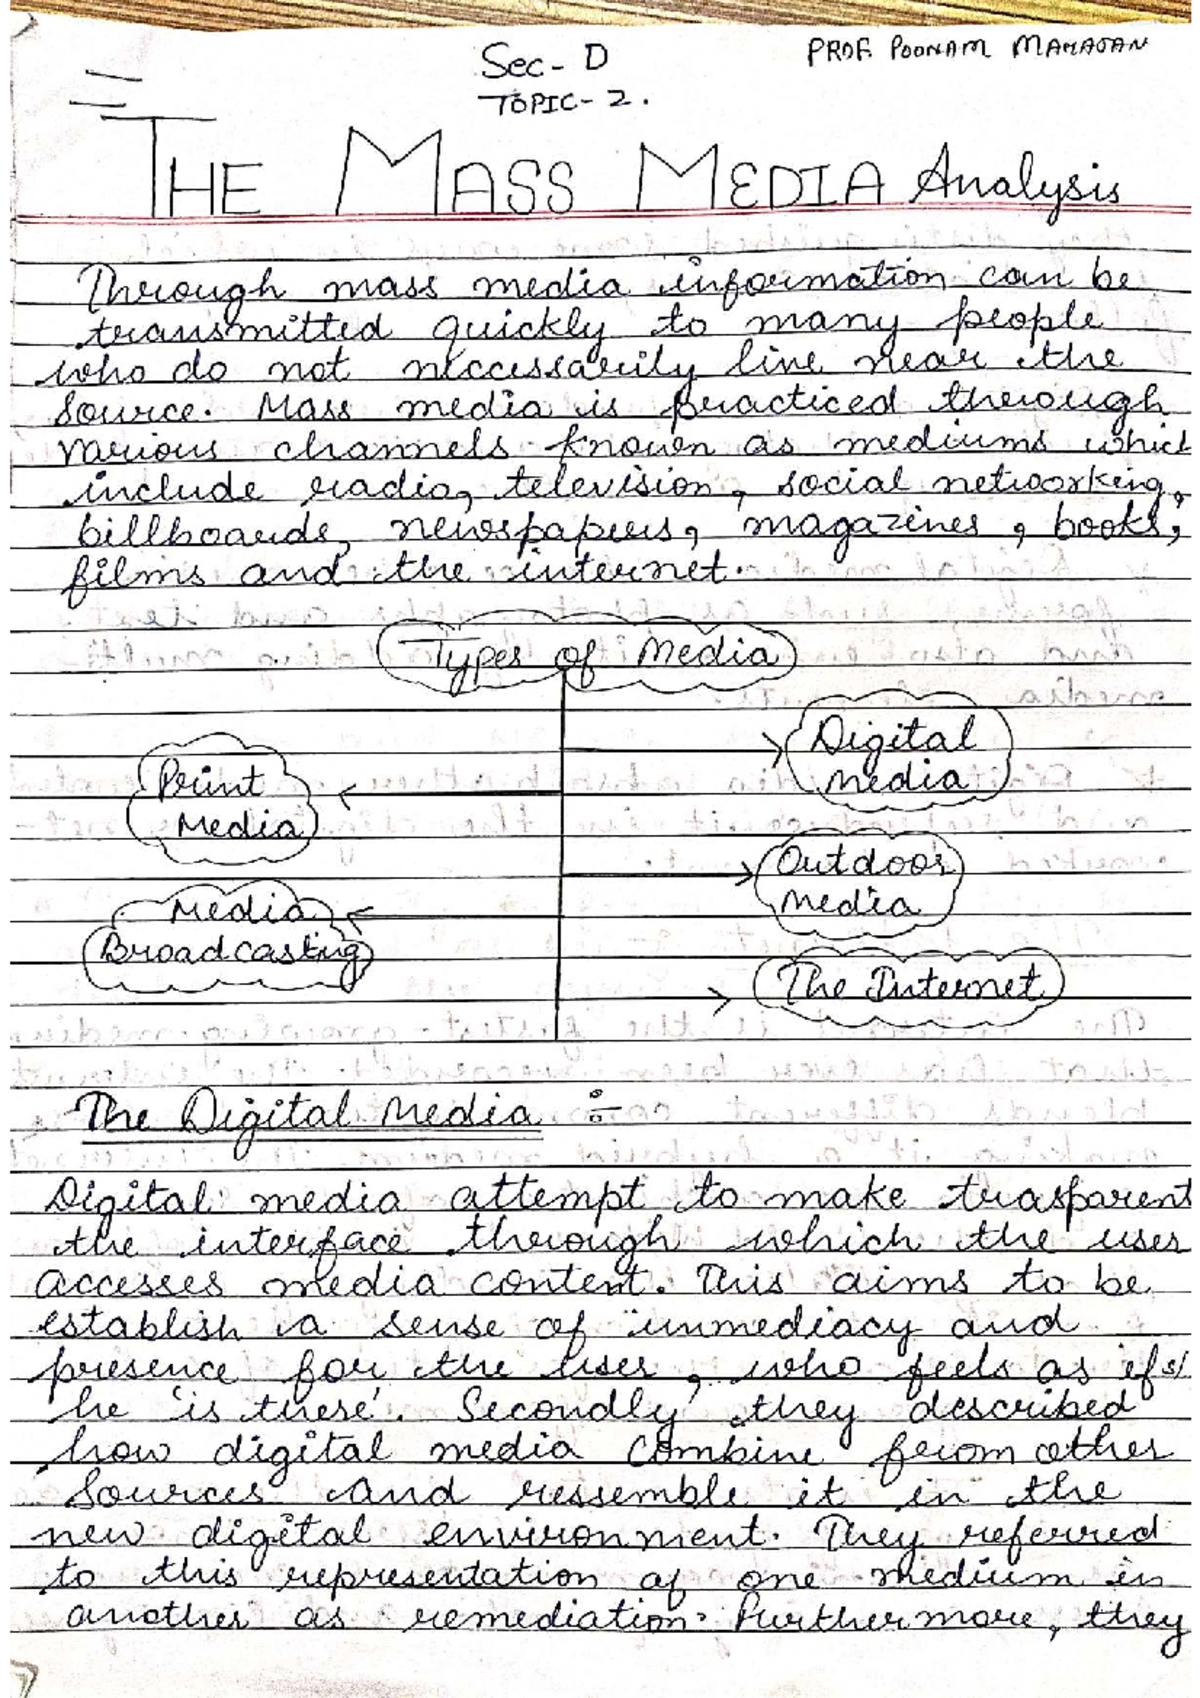 Sec- D
PROF. POONAM MAHAJAN
TOPIC- 2.
THE MASS MEDIA Analysis
Through mass media information can be
transmitted quickly to many people
who do not neccessarily live near the
source. Mass media is practiced through
various channels known as mediums which
include radio, television, social networking,
billboards, newspapers, magazines, books,
films and the internet.
Types of Media
Digital
media
Print
Media
Outdoor
media
Media
Broadcasting
The Internet
The Digital Media :-
Digital media attempt to make trasparent
the interface through which the user
accesses media content. This aims to be
establish a sense of immediacy and
presence for the user, who feels as if s/
he 'is there'. Secondly they described
how digital media combine from other
sources and ressemble it in the
new digital environment. They referred
to this representation of one medium in
another as remediation. Furthermore, they